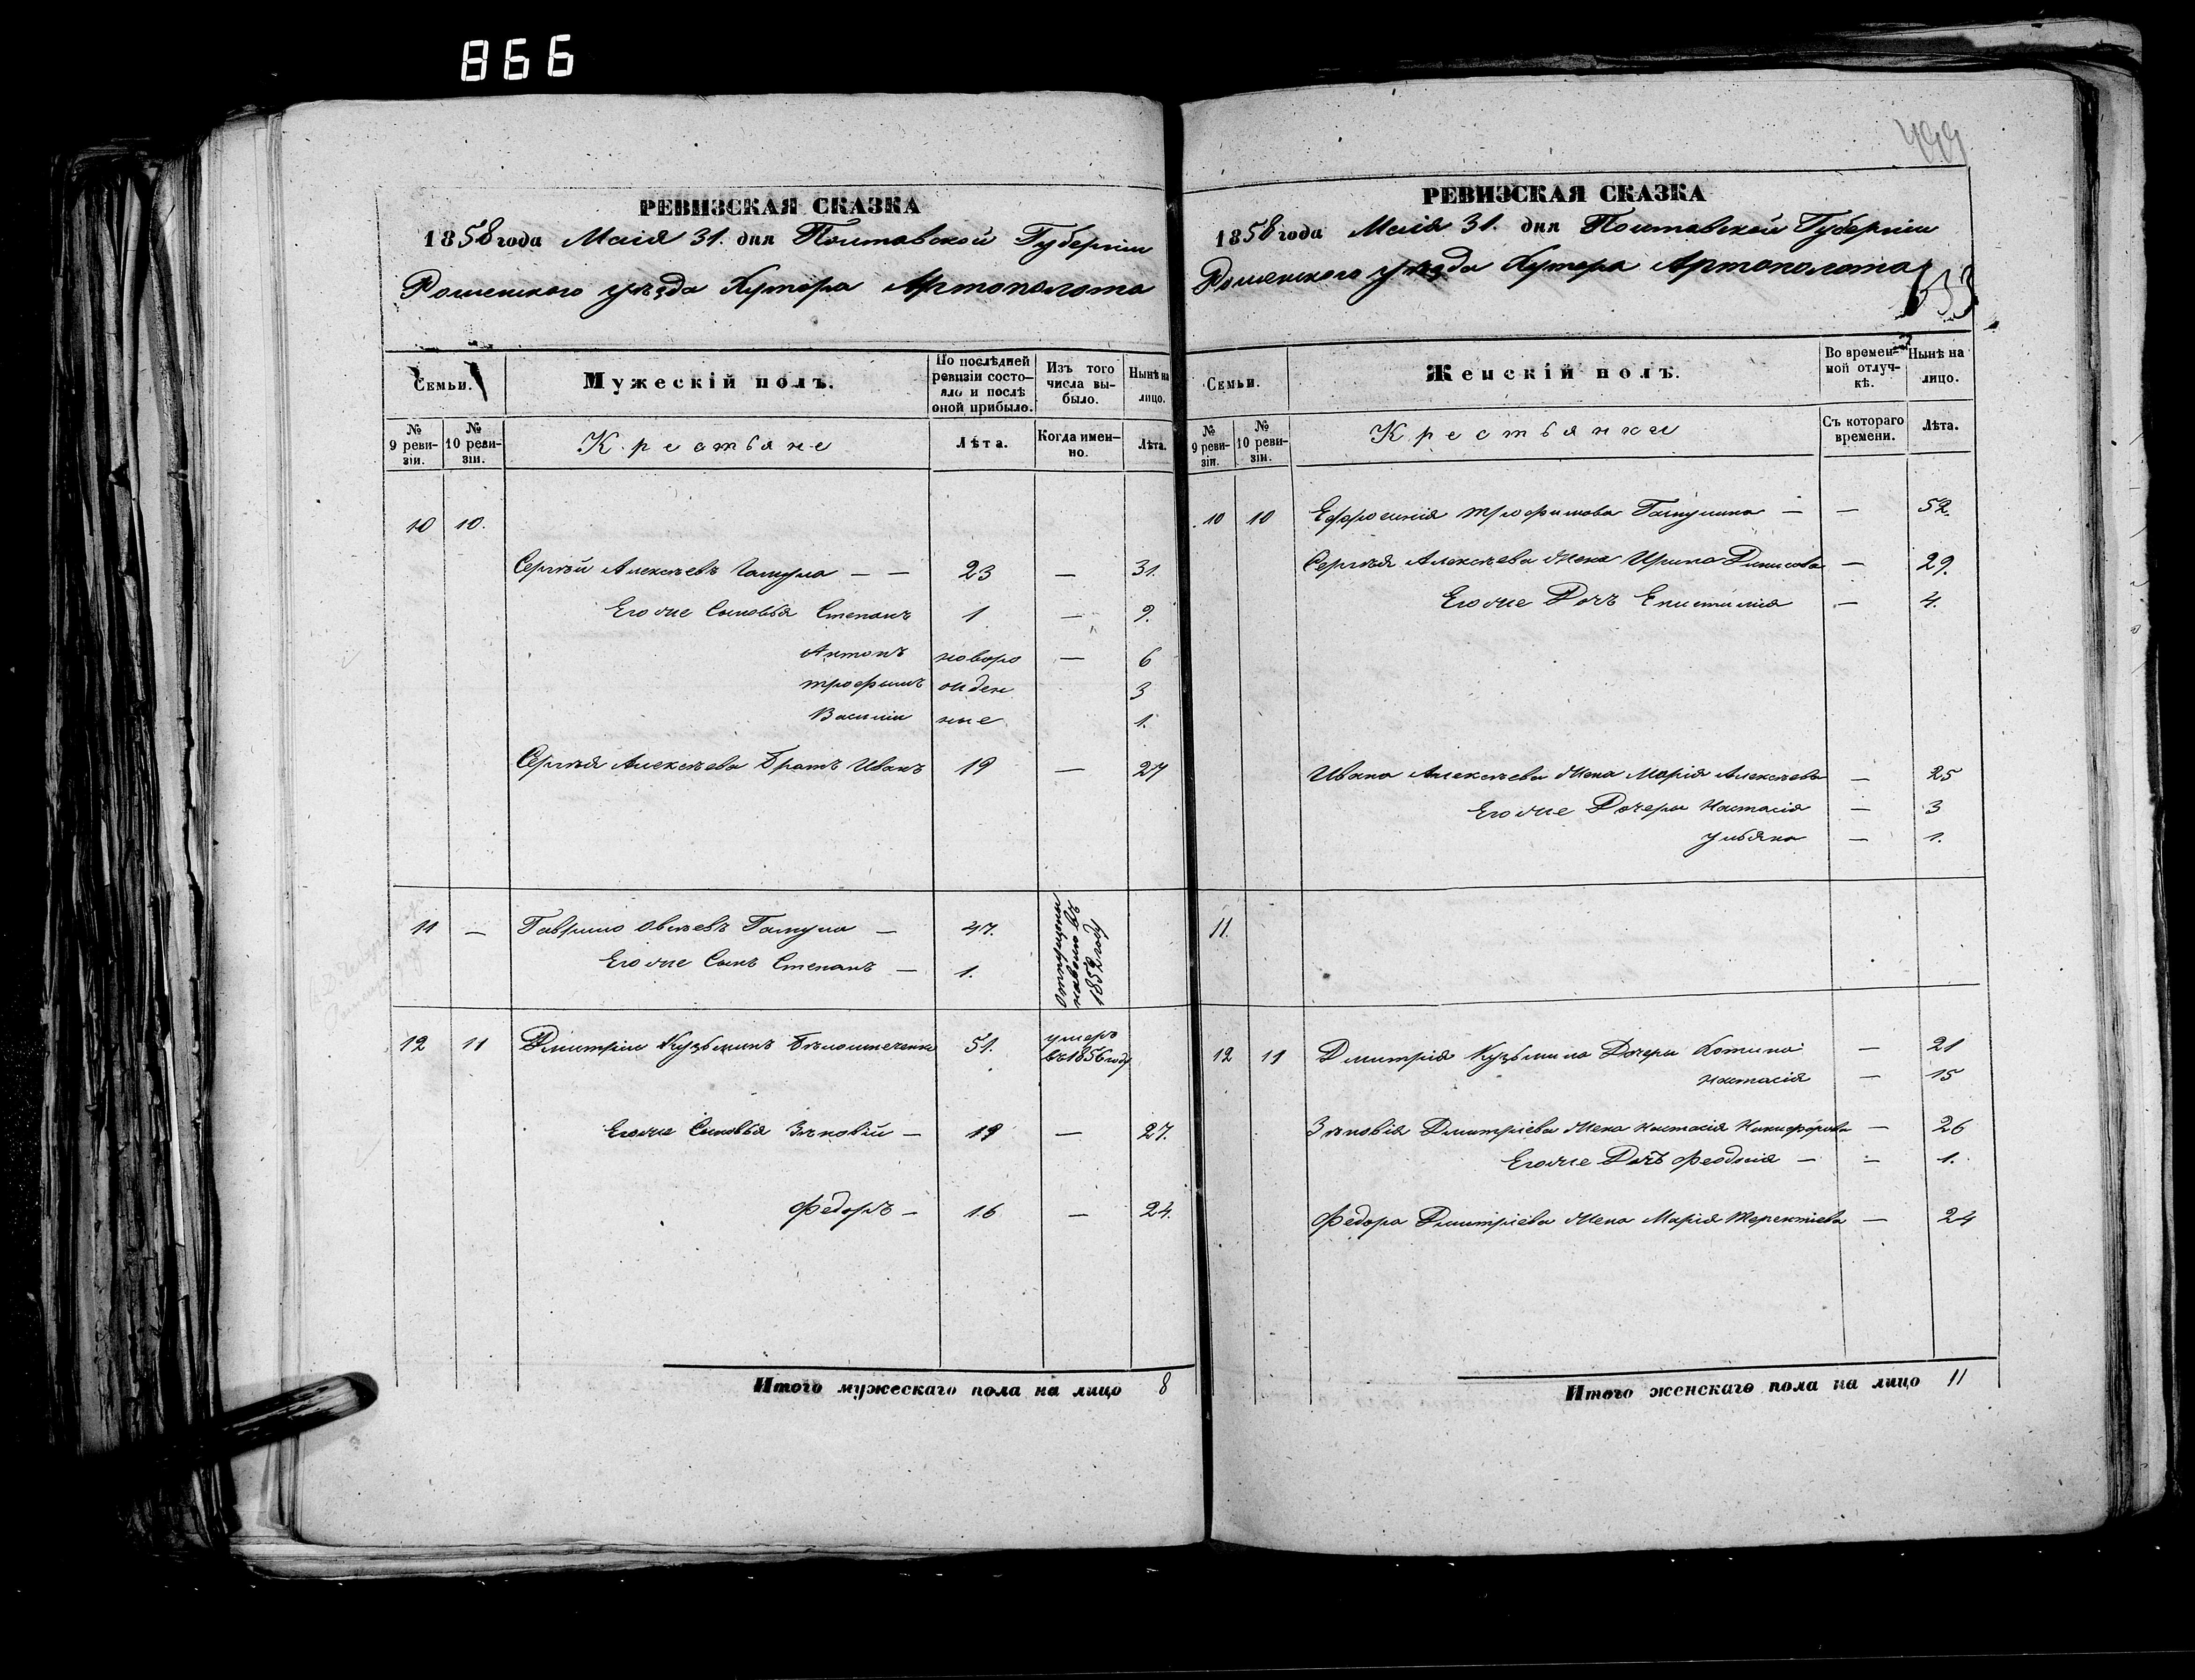 866
РЕВИЗСКАЯ СКАЗКА
1858 года Маія 31. дня Полтавской Губерніи
Роменского уѣзда Хутора Артополота
Семьи.
Мужескій полъ.
По послѣдней ревизіи состояло и послѣ оной прибыло.
Изъ того числа выбыло.
Нынѣ на лицо.
№ 9 ревизіи.
№ 10 ревизіи.
Крестьяне
Лѣта.
Когда именно.
Лѣта.
10 10.
Сергѣй Алексѣевъ Гамула — — 23 — 31.
Его же Сыновья Степанъ 1 — 9.
Антонъ новоро — 6
Трофимъ жден 3
Василій ные 1.
Сергѣя Алексѣева Братъ Иванъ 19 — 27
11 — Гаврило Овсѣевъ Гамула — 47.
Его же Сынъ Степанъ — 1.
отпущены
на волю въ
1852 году
12 11 Дмитрій Кузьминъ 51. умеръ
въ 1856 году
Его же Сыновья Зѣновій — 19 — 27.
Федоръ — 16 — 24.
Итого мужескаго пола на лицо 8
499
РЕВИЗСКАЯ СКАЗКА
1858 года Маія 31. дня Полтавской Губерніи
Роменского уѣзда Хутора Артополота
Семьи.
Женскій полъ.
Во временной отлучкѣ.
Нынѣ на лицо.
№ 9 ревизіи.
№ 10 ревизіи.
Крестьянки
Съ котораго времени.
Лѣта.
10 10 Ефросинія Трофимова Гамулина — — 52.
Сергѣя Алексѣева Жена Ирина Динисова — 29.
Его же Дочъ Епистимія — 4.
Ивана Алексѣева Жена Марія Алексѣева — 25
Его же Дочери Настасія — 3
Ульяна — 1.
11.
12 11 Дмитрія Кузьмина Дочери — 21
Настасія — 15
Зѣновія Дмитріева Жена Настасія Никифорова — 26
Его же Дочъ Феодосія — — 1.
Федора Дмитріева Жена Марія Терентіева — 24
Итого женскаго пола на лицо 11